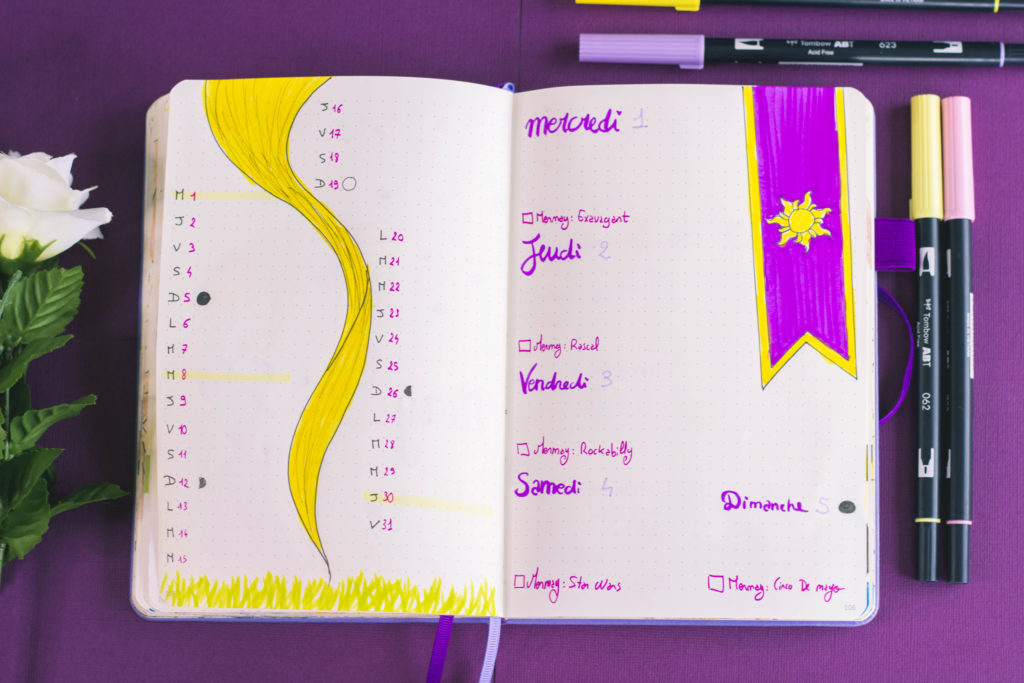 M 1
J 2
V 3
S 4
D 5
L 6
M 7
M 8
J 9
V 10
S 11
D 12
L 13
M 14
M 15
J 16
V 17
S 18
D 19
L 20
M 21
M 22
J 23
V 24
S 25
D 26
L 27
M 28
M 29
J 30
V 31
mercredi 1
Mermay: Exavagant
Jeudi 2
Mermay: Rascal
Vendredi 3
Mermay: Rockabilly
Samedi 4
Mermay: Star Wars
Dimanche 5
Mermay: Cinco De mayo
106
Tombow ABT 623
Acid Free
Tombow ABT 062
Acid Free